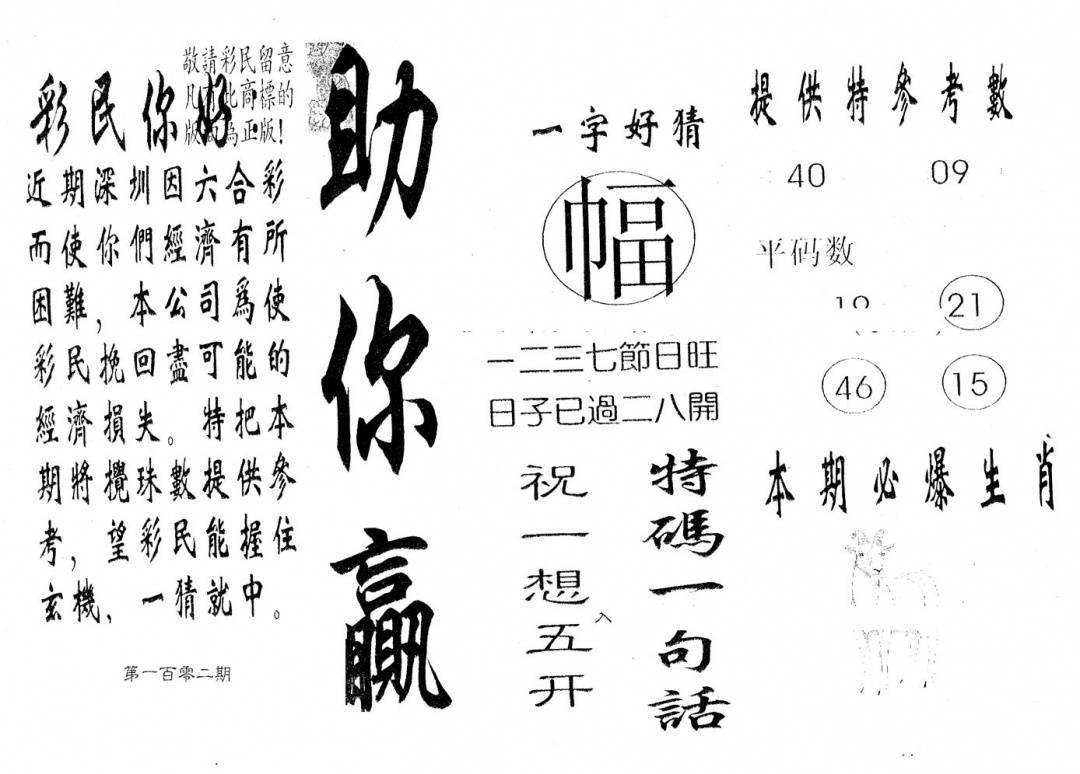 敬請彩民留意
凡 此商標的
版 為正版！
彩民你好
近期深圳因六合彩
而使你們經濟有所
困難，本公司爲使
彩民挽回盡可能的
經濟損失。特把本
期將攪珠數提供參
考，望彩民能握住
玄機、一猜就中。
第一百零二期
助你贏
一字好猜
幅
一二三七節日旺
日子已過二八開
特碼一句話
祝一想五开
入
提供特參考數
40 09
平码数
21
46 15
本期必爆生肖